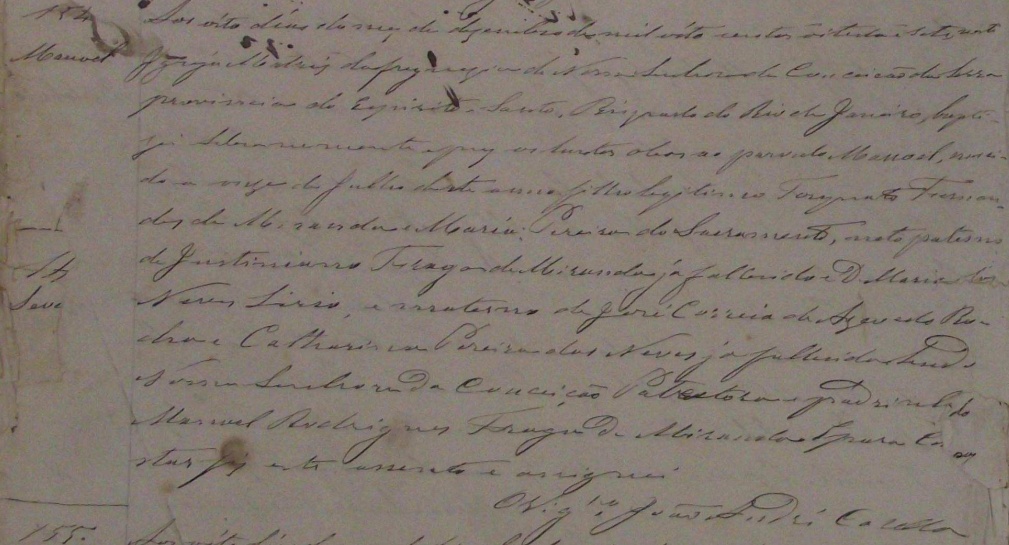 154
Manoel
Aos oito dias do mez de dezembro de mil oito centos oitenta e sete, nesta
Igreja Matriz da freguezia de Nossa Senhora da Conceição da Serra
provincia do Espirito-Santo, Bispado do Rio de Janeiro, bapti-
sei solemnemente e puz os Santos oleos ao parvulo Manoel, nasci-
do a onze de Julho deste anno, filho legitimo Torquato Fernan-
des de Miranda e Maria Pereira do Sacramento, neto paterno
de Justiniano Fraga de Miranda já fallecido e D. Maria das
Neves Lirio, e materno de José Correia de Azevedo Ro-
cha e Catharina Pereira das Neves já fallecida, sendo
Nossa Senhora da Conceição Protectora e padrinho
Manoel Rodrigues Fraga de Miranda E para
star fiz este assento e assignei
O Vig.ro João André
155.
Aos oito dias do